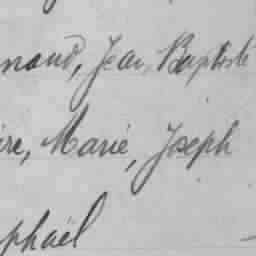 naud, Jean, Baptiste
ire, Marie, Joseph
phaël